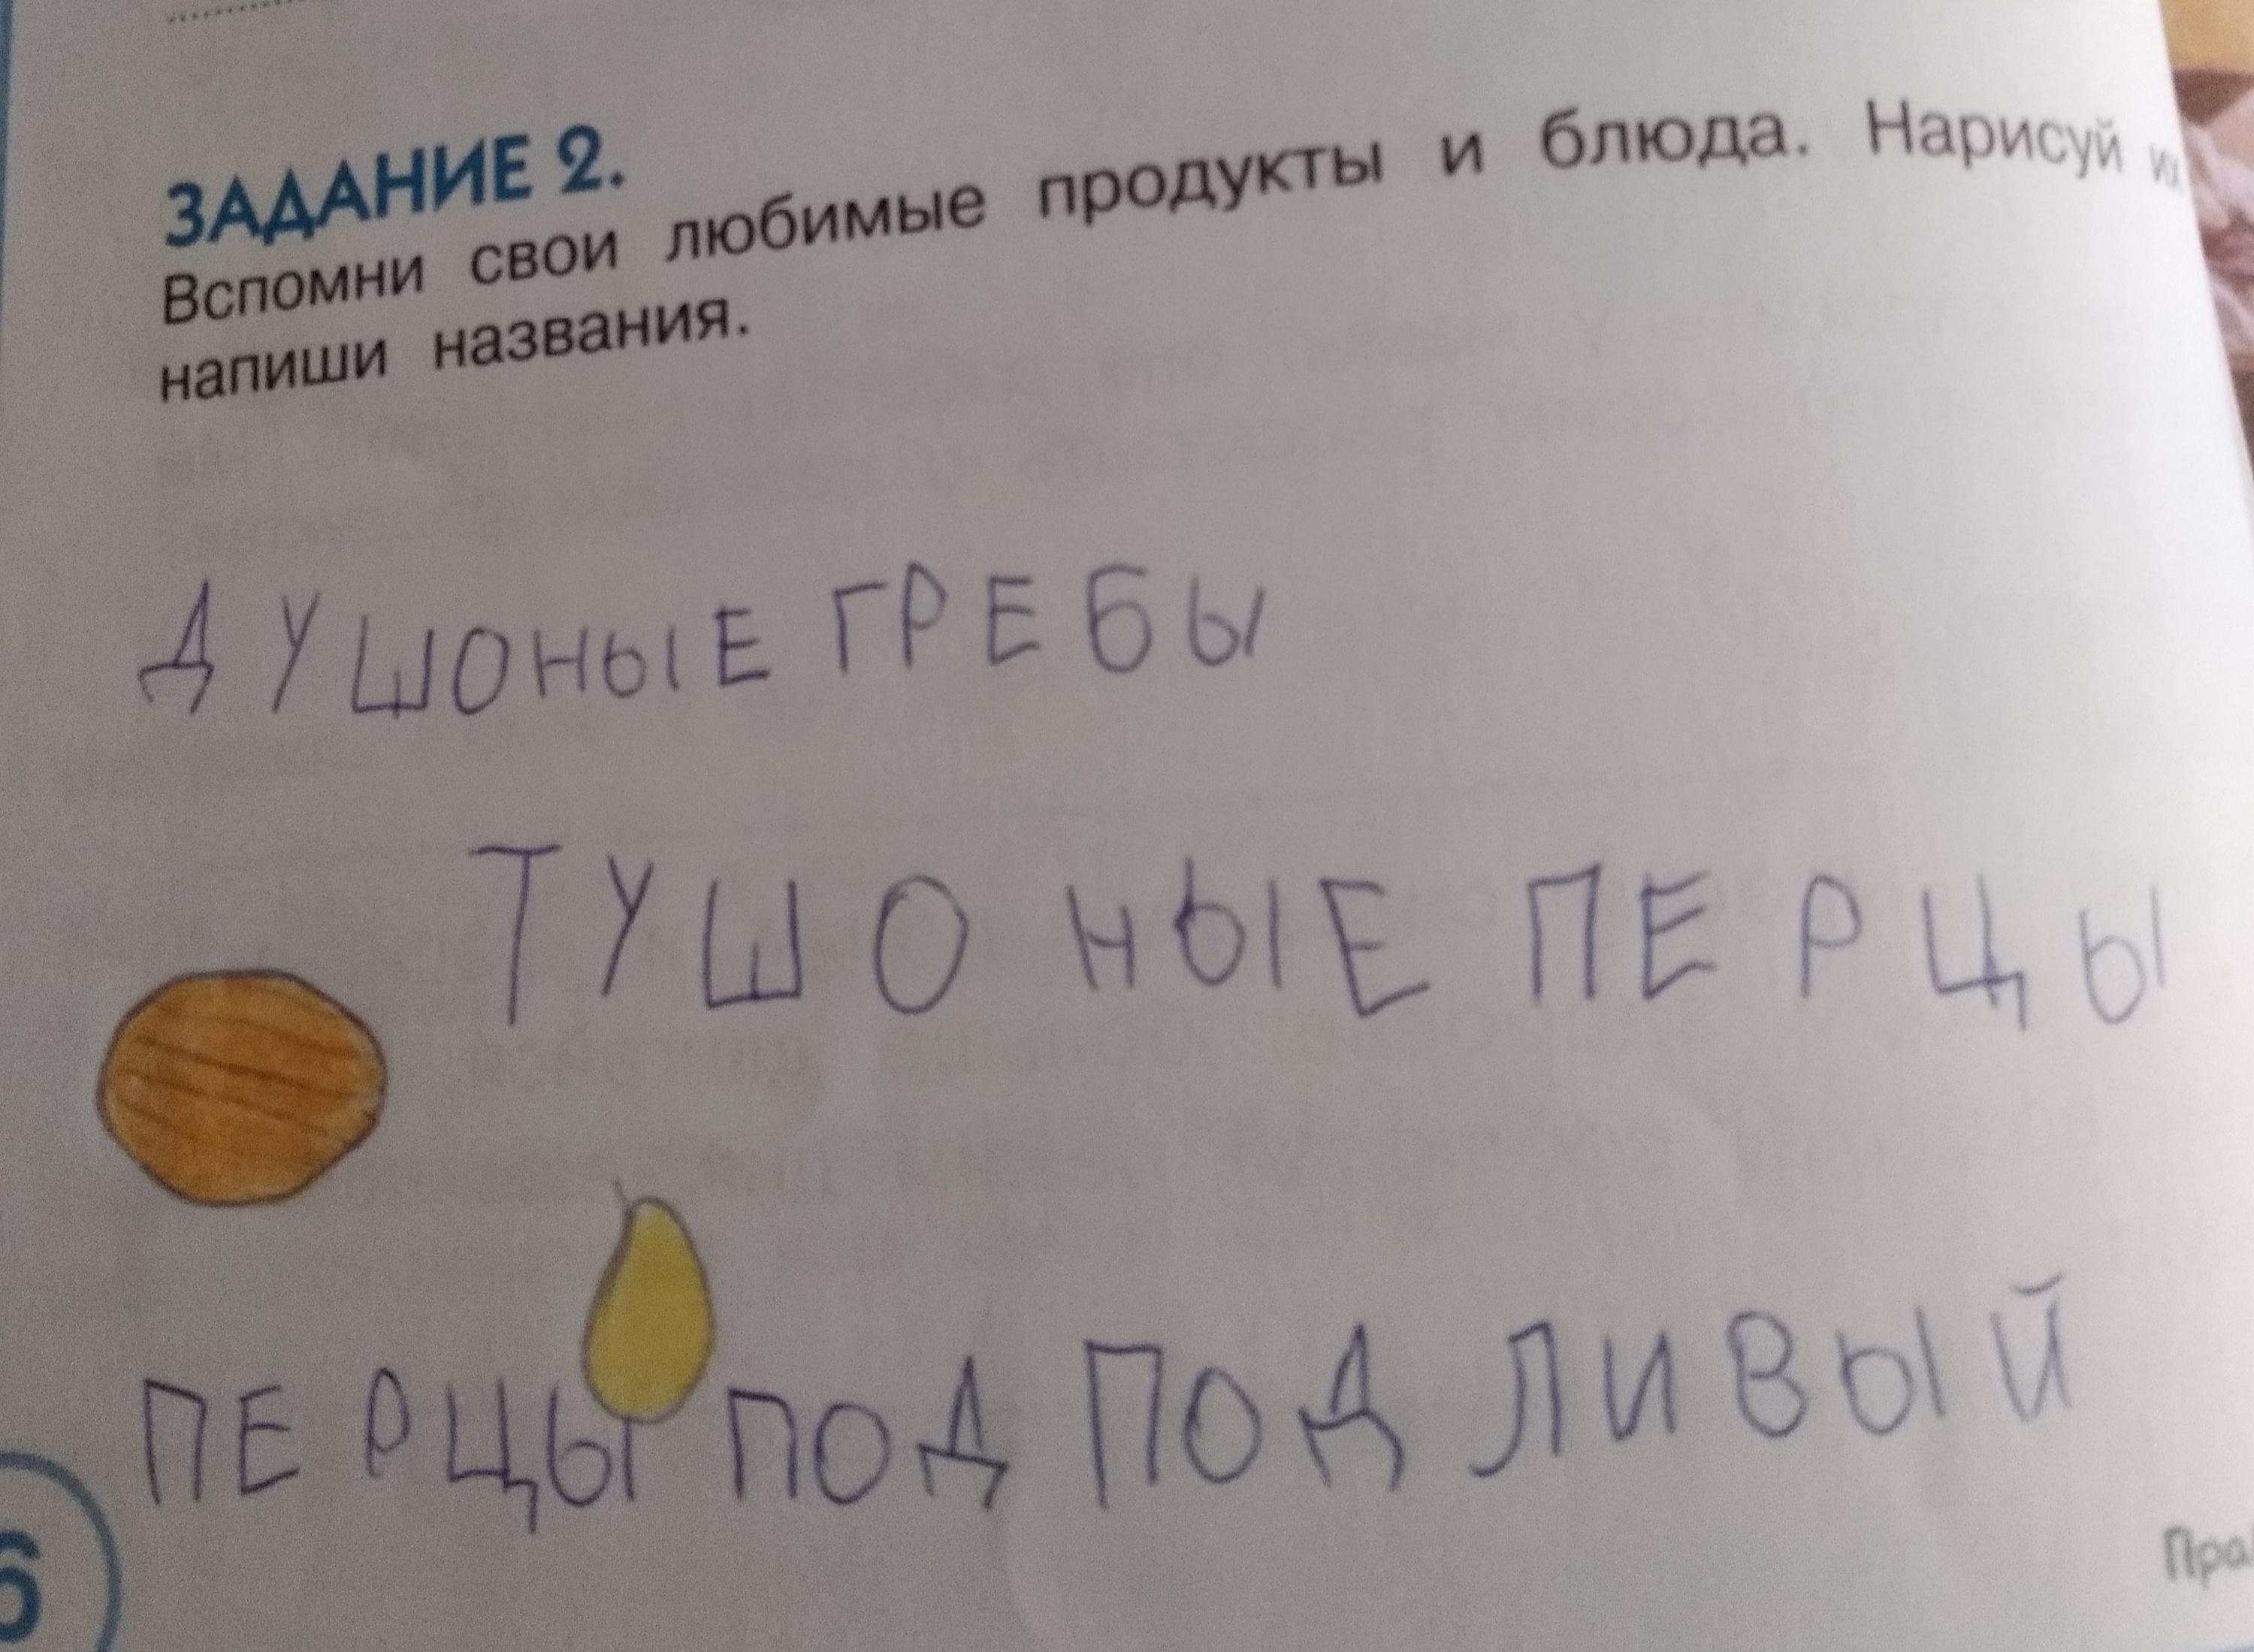 ЗАДАНИЕ 2.
Вспомни свои любимые продукты и блюда. Нарисуй их
напиши названия.
ДУШОНЫЕ ГРЕБЫ
ТУШОНЫЕ ПЕРЦЫ
ПЕРЦЫ ПОД ПОДЛИВЫЙ
6